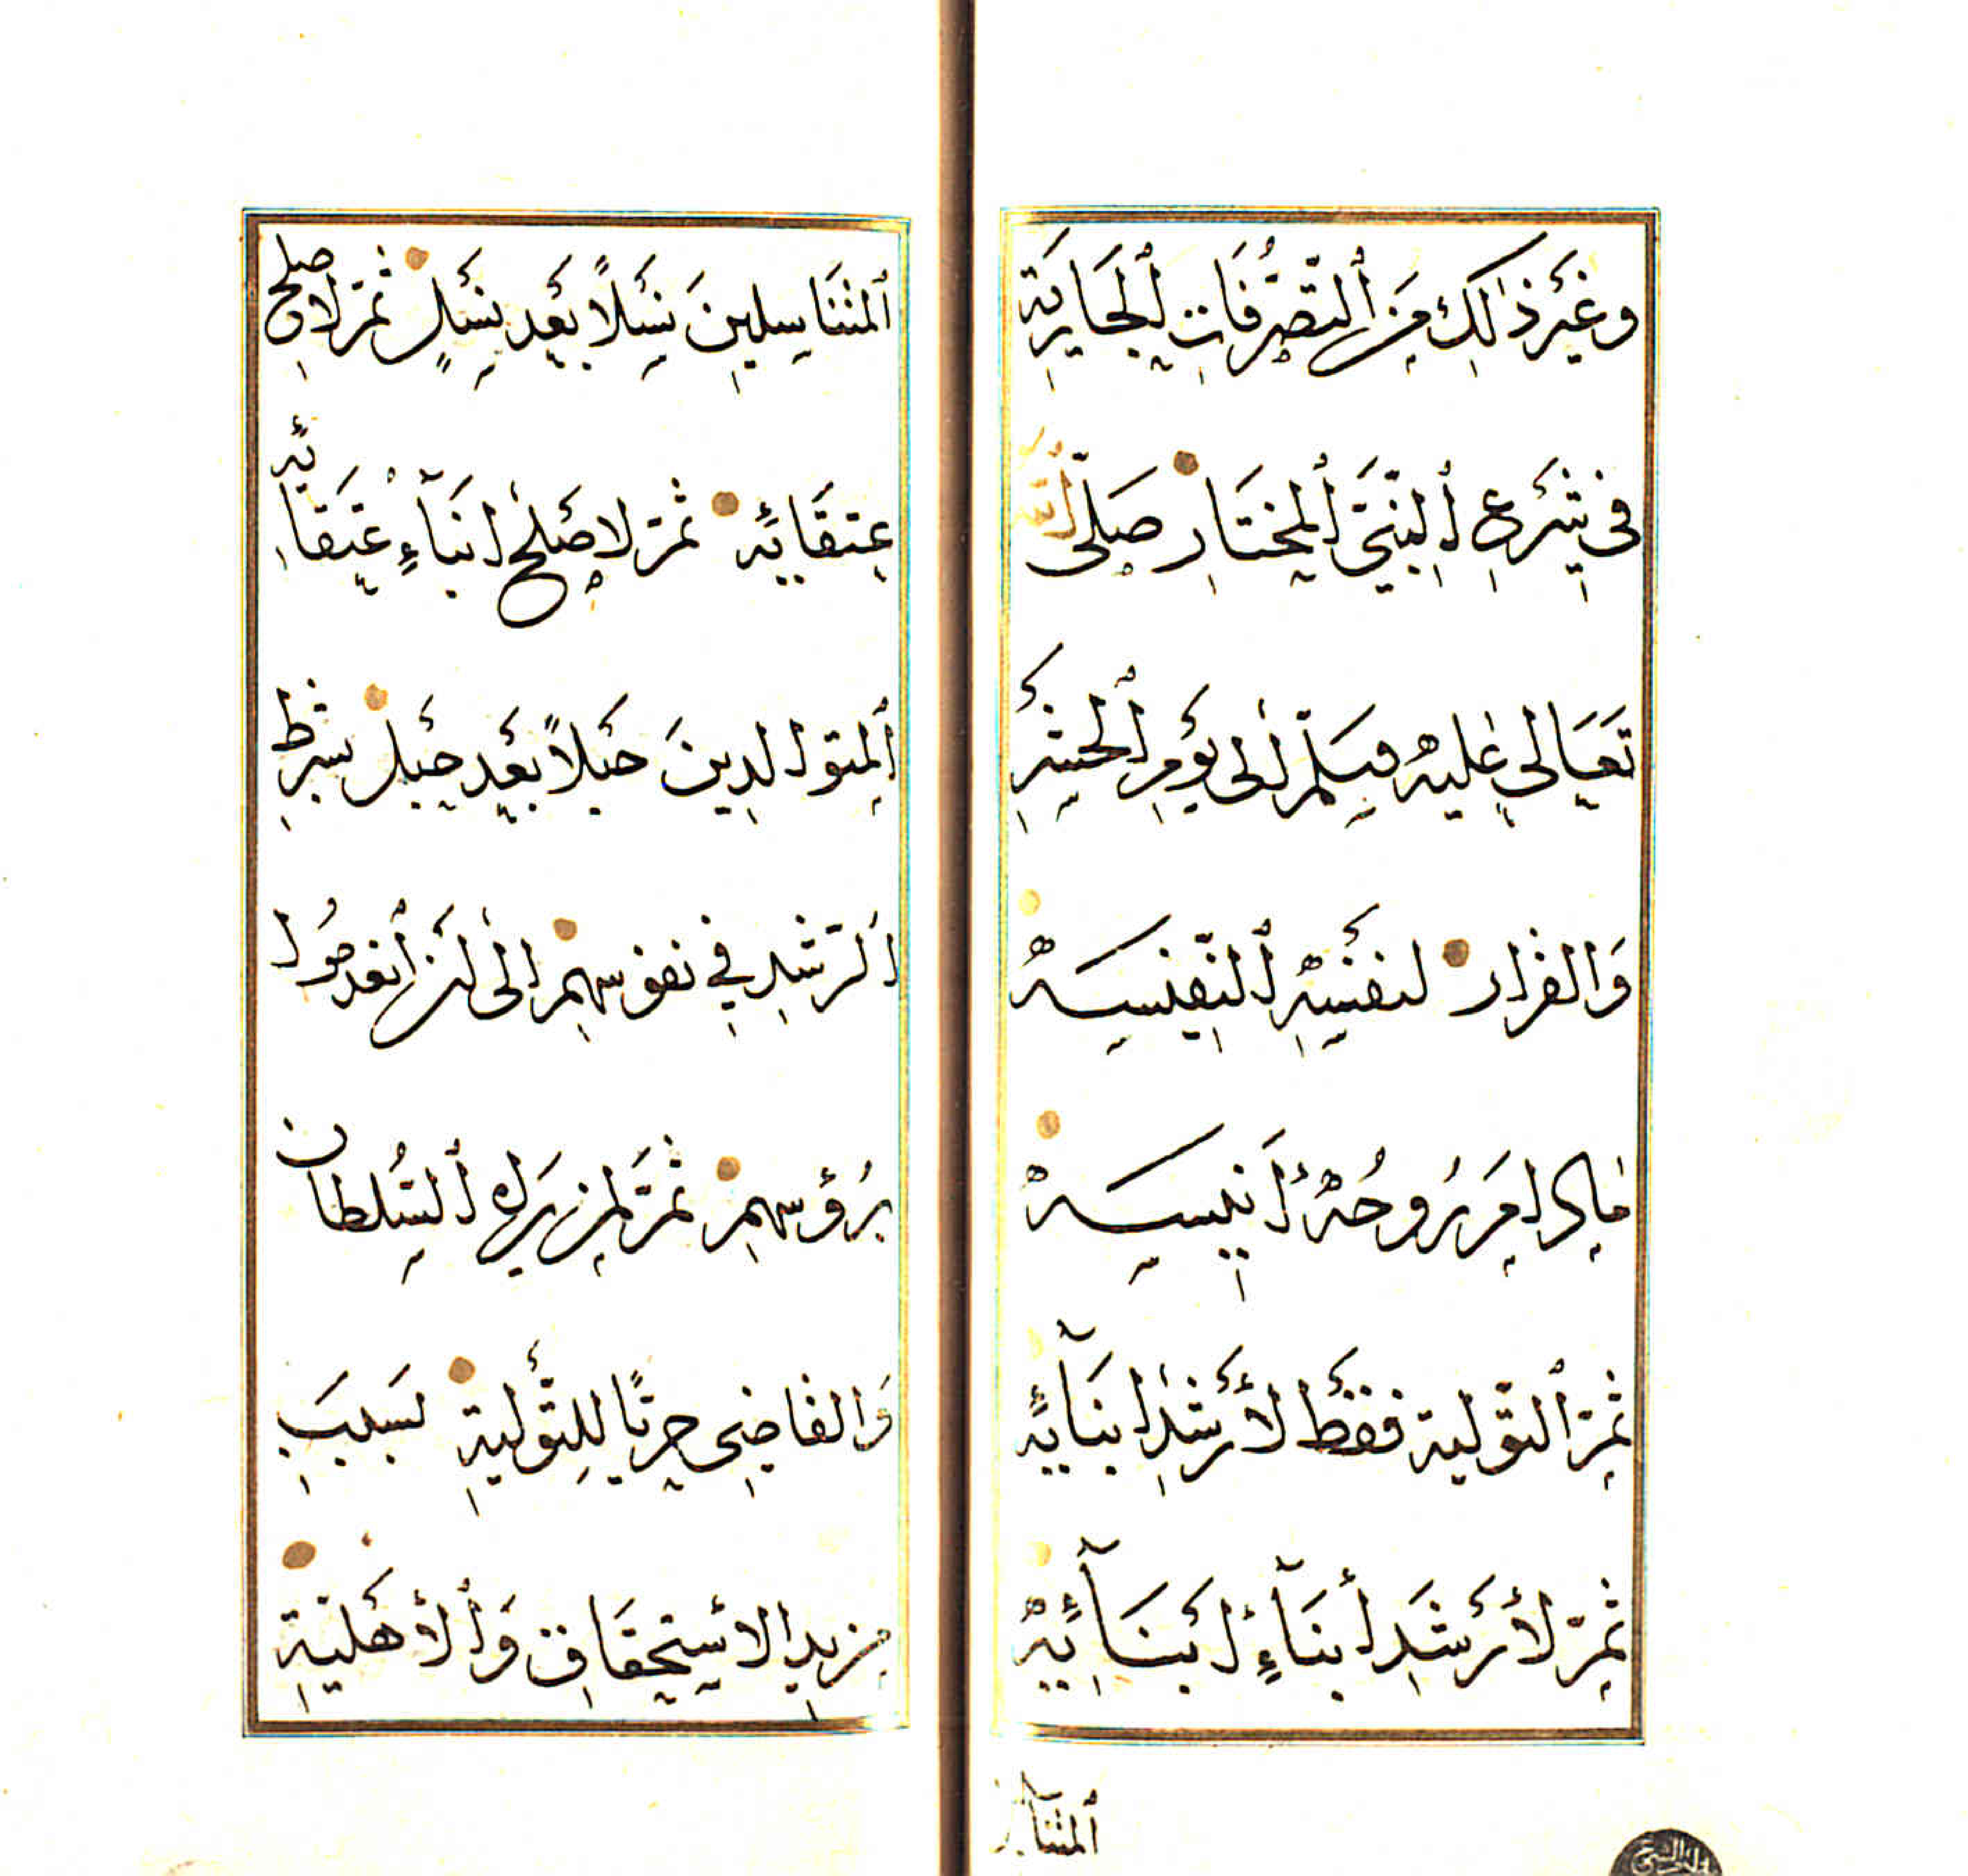 وَغَيْرِ ذٰلِكَ مِنَ ٱلتَّصَرُّفَاتِ ٱلْجَارِيَةِ
فِي شَرْعِ ٱلنَّبِيِّ ٱلْمُخْتَارِ صَلَّى ٱللّٰهُ
تَعَالٰى عَلَيْهِ وَسَلَّمَ إِلٰى يَوْمِ ٱلْحَشْرِ
وَالقَرَارِ لنفْسِهِ ٱلنَّفِيسَهْ
مَادَامَ رُوحُهُ أَنِيسَهْ
ثُمَّ ٱلتَّوْلِية فَقَطْ لأَرْشَدِ ابنَآئِهِ
ثُمَّ لأَرْشَدِ أَبنَآءِ ابْنَآئِهِ
ٱلمتنَا
ٱلمتنَاسِلِينَ نَسْلًا بَعْدَ نَسْلٍ ثُمَّ لاصلح
عتقَائِهِ ثُمَّ لاصْلَحِ ابنَآءِ عُتَقَائِهِ
ٱلمتوالدِينَ حَبْلًا بَعْدَ حَبْلٍ بشرطِ
الرُّشْدِ فِي نفوسهم إلٰى أن انقرضُوا
برُؤسهم ثُمَّ لمن يَرَاهُ ٱلسُّلطان
وَالقاضِي حرِيًّا لِلتَّوْلِيَةِ بسَبَبِ
مزيدِ الاسْتِحْقَاقِ وَٱلأَهْلِيَّةِ